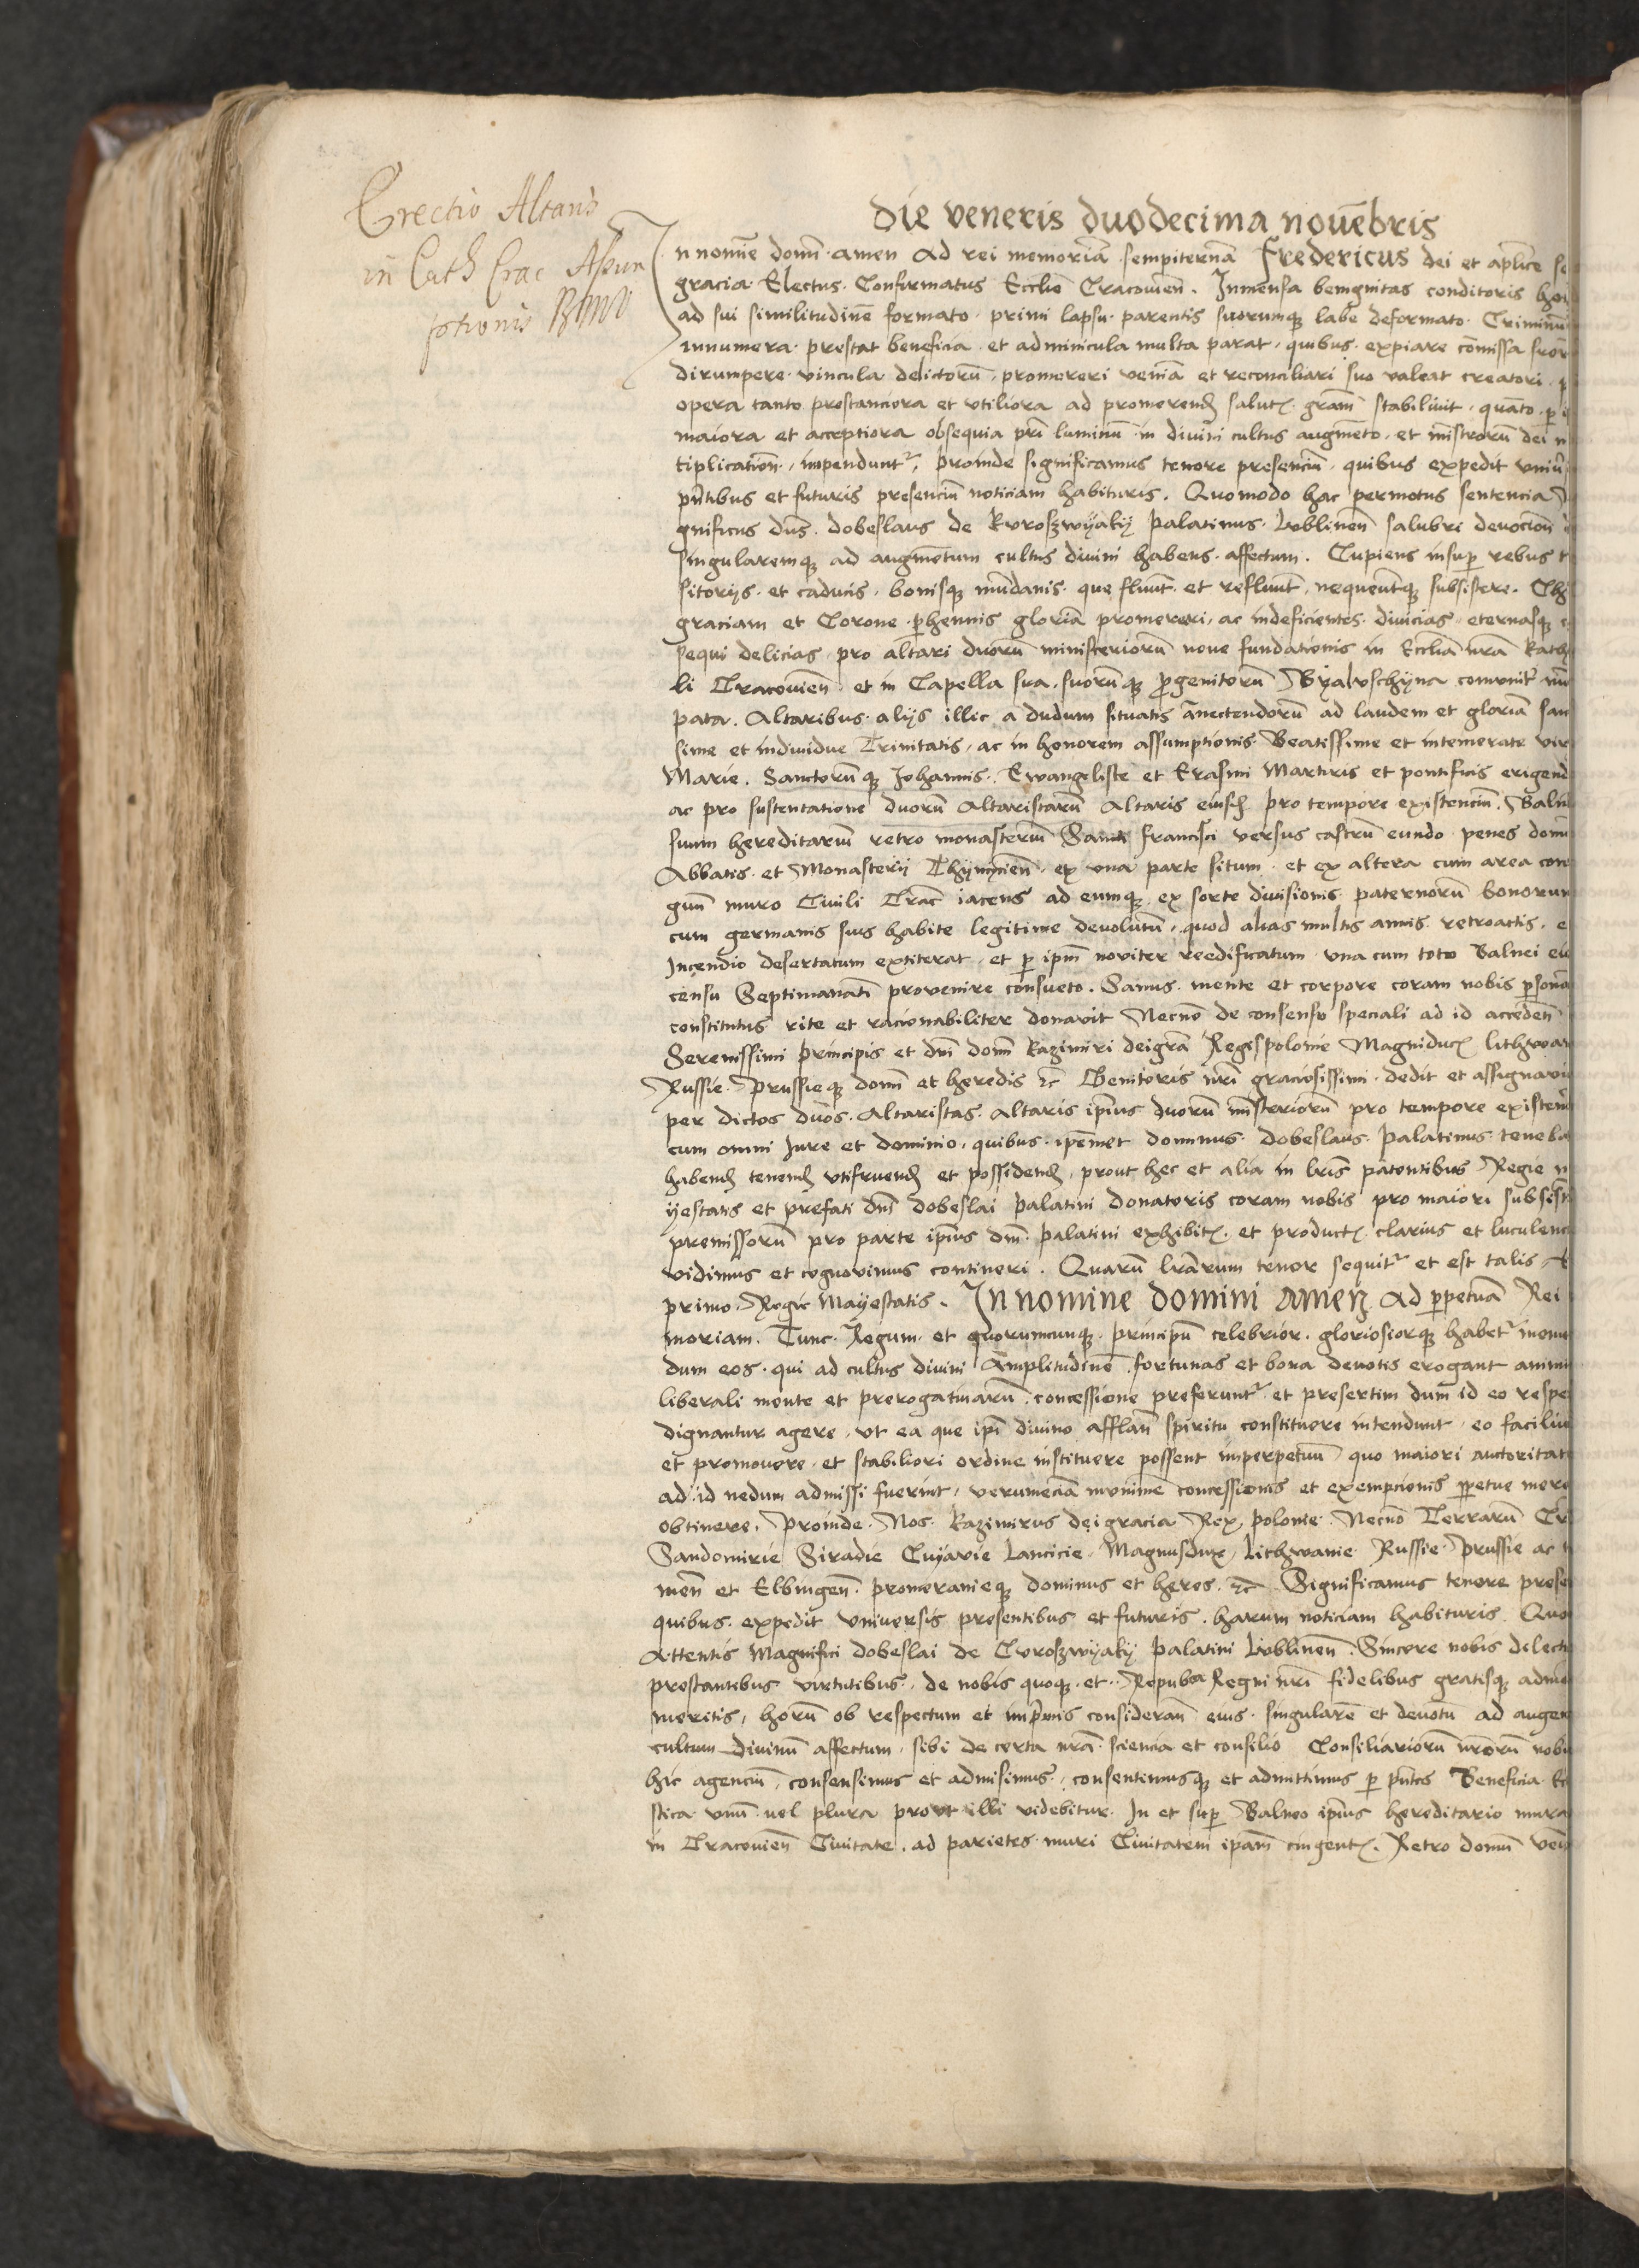 Erectio Altaris
in Cath Crac Assum
ptionis BMV
Die veneris duodecima novēbris
In nomīe domī amen Ad rei memoriā sempiternā Fredericus dei et aplīce se
gracia Electus Confirmatus Ecclīe Cracovieñ. Inmensa benignitas conditoris
ad sui similitudinē formato primi lapsu parentis suorumqꝫ labe deformato Criminū
innumera prestat beneficia et adminicula multa parat quibus expiare cōmissa
dirumpere vincula delictorū promereri veniā et reconciliari suo valeat creatori
opera tanto prestanciora et vtiliora ad promerend salutꝭ grām stabilivit quāto
maiora et acceptiora obsequia prī luminū in divini cultus augmēto et mīstrorū dei
tiplicatioñ impenduntr proinde significamus tenore presenciū quibus expedit
pñtibus et futuris presenciū noticiam habituris. Quomodo hac permotus sentencia
gnificus dūs dobeslaus de Kuroszwyaky palatinus lublineñ salubri devocioñ
singularemqꝫ ad augmētum cultus divini habens affectum. Cupiens insuꝑ rebus
sitorijs et caducis bonisqꝫ mūdanis que fluūt et refluūt nequeūtqꝫ subsistere.
graciam et Corone ꝑhennis gloriā promereri ac indeficientes divicias eternasqꝫ
sequi delicias pro altari duorū ministeriorū noue fundationis in Ecclīa nrā Kath
li Cracovieñ et in Capella sua suorūqꝫ ꝓgenitorū communitr
pata. Altaribus alijs illic a dudum situatis ānectendorū ad laudem et gloriā san
sime et individue Trinitatis ac in honorem assumptionis Beatissime et intemerate vir
Marie. Sanctorūqꝫ Johannis Ewangeliste et Erasmi Martiris et pontificis erigend
ac pro sustentatione duorū Altaristarū Altaris eiusd pro tempore existenciū Baln
suum hereditariū retro monasteriū Sancti francisci versus castrū eundo penes domū
Abbatis et Monasterij Thynicieñ ex vna parte situm et ex altera cum area con
guū muro Civili Crac̄ iacens ad eumqꝫ ex sorte divisionis paternorū bonorum
cum germanis suis habite legitime devolutū quod alias multis annis retroactis
Incendio desertatum extiterat et ꝑ ipm̄ noviter reedificatum vna cum toto Balnei
censu Septimanatī provenire consueto. Sanus mente et corpore coram nobis ꝑsona
constitutus rite et racionabiliter donavit Necnō de consensu speciali ad id accedeñ
Serenissimi principis et dnī domī Kazimiri dei grā Regis polonie Magniducꝭ lithwan
Russie Prussieqꝫ domī et heredis etc̄ Genitoris nrī graciosissimi dedit et assignavit
per dictos duos Altaristas Altaris ipīus duorū mīsteriorū pro tempore existen
cum omni Jure et dominio quibus ipēmet dominus dobeslaus palatinus teneba
habend tenend vtifruend et possidend prout hec et alia in lrīs patentibus Regie
yestatis et prefati dnī dobeslai palatini donatoris coram nobis pro maiori subsist
premissorū pro parte ipīus dnī palatini exhibitꝭ et productꝭ clarius et luculenc
vidimus et cognovimus contineri. Quarū lrārum tenor sequitr et est talis Et
primo Regie Mayestatis. In nomine domini amen Ad ꝑpetuā Rei
moriam. Tunc Regum et quorumcunqꝫ principū celebrior gloriosiorqꝫ habetr
dum eos qui ad cultus divini Amplitudinē fortunas et bona devotis erogant animi
liberali mente et prerogativarū concessione preferuntr et presertim dum id eo respe
dignantur agere vt ea que ipī divino afflañ spiritu constituere intendunt eo faciliu
et promovere et stabiliori ordine instituere possent imperpetuū quo maiori auctoritat
ad id nedum admissi fuerint verumeciā munimē concessionis et exempcionis ꝑpetue
obtinere. Proinde Nos Kazimirus dei gracia Rex polonie Necnō Terrarū Cr
Sandomirie Siradie Cuyavie Lancicie Magnusdux Lithwanie Russie Prussie ac
meñ et Elbingeñ pomeranieqꝫ dominus et heres etc̄ Significamus tenore prese
quibus expedit vniversis presentibus et futuris harum noticiam habituris Quo
Attentis Magnifici dobeslai de Curoszwyaky palatini lublineñ Sincere nobis dilecti
prestantibus virtutibus de nobis quoqꝫ et Repubca Regni nrī fidelibus gratisqꝫ
meritis horū ob respectum et inprimis consideracioñ eius singularē et devotū ad augen
cultum divinū affectum sibi de certa nrā sciencia et consilio Consiliariorū nrorū nobis
hic agenciū consensimus et admisimus consentimusqꝫ et admittimus ꝑ pñtes Beneficia
stica vnū vel plura prout illi videbitur In et suꝑ Balneo ipīus hereditario mura
in Cracovieñ Civitate ad parietes muri Civitatem ipām cingentꝭ. Retro domū